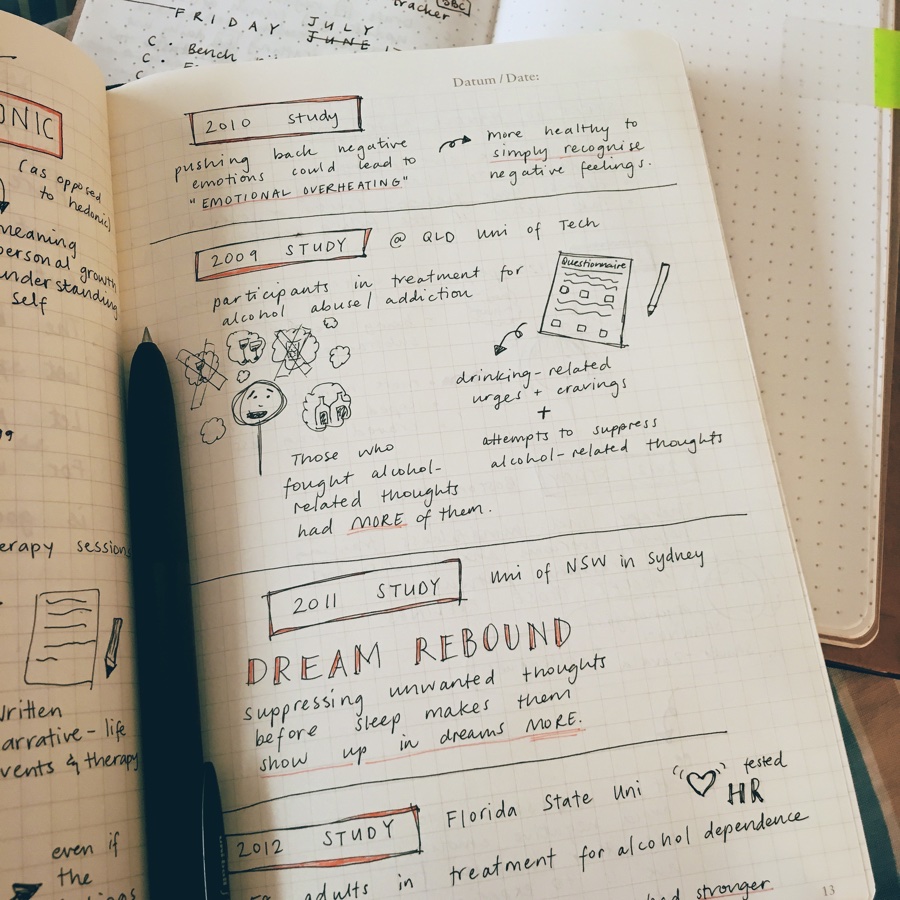 tracker
FRIDAY JULY
JUNE
C · Bench
C ·
ONIC
(as opposed
to hedonic)
meaning
personal growth
understanding
self
erapy sessions
written
arrative - life
vents & therapy
even if
the
Datum / Date:
2010 study
pushing back negative
emotions could lead to
"EMOTIONAL OVERHEATING"
more healthy to
simply recognise
negative feelings.
2009 STUDY @ QLD uni of Tech
participants in treatment for
alcohol abuse / addiction
Questionnaire
drinking-related
urges + cravings
+
attempts to suppress
alcohol-related thoughts
Those who
fought alcohol-
related thoughts
had MORE of them.
2011 STUDY uni of NSW in Sydney
DREAM REBOUND
suppressing unwanted thoughts
before sleep makes them
show up in dreams MORE.
2012 STUDY Florida State Uni tested
HR
adults in treatment for alcohol dependence
had stronger
13